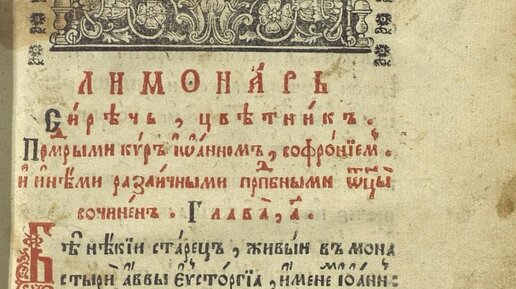 ЛИМОНА́РЬ
Си́рѣчь , цвѣ́тник .
Премⷣрыми кѷр ї҆ѡа́нном , софро́нїем .
и҆ и҆нѣ́ми разли́чными прпⷣбными ѻ҆тцы̀
сочине́н . Глава̀ , а҃ .
Бѣ̀ нѣ́кїи ста́рец , живы́и в мона
стырѝ а҆́ввы є҆ѵсто́ргїа , и҆́мене ї҆ѡа́нн :